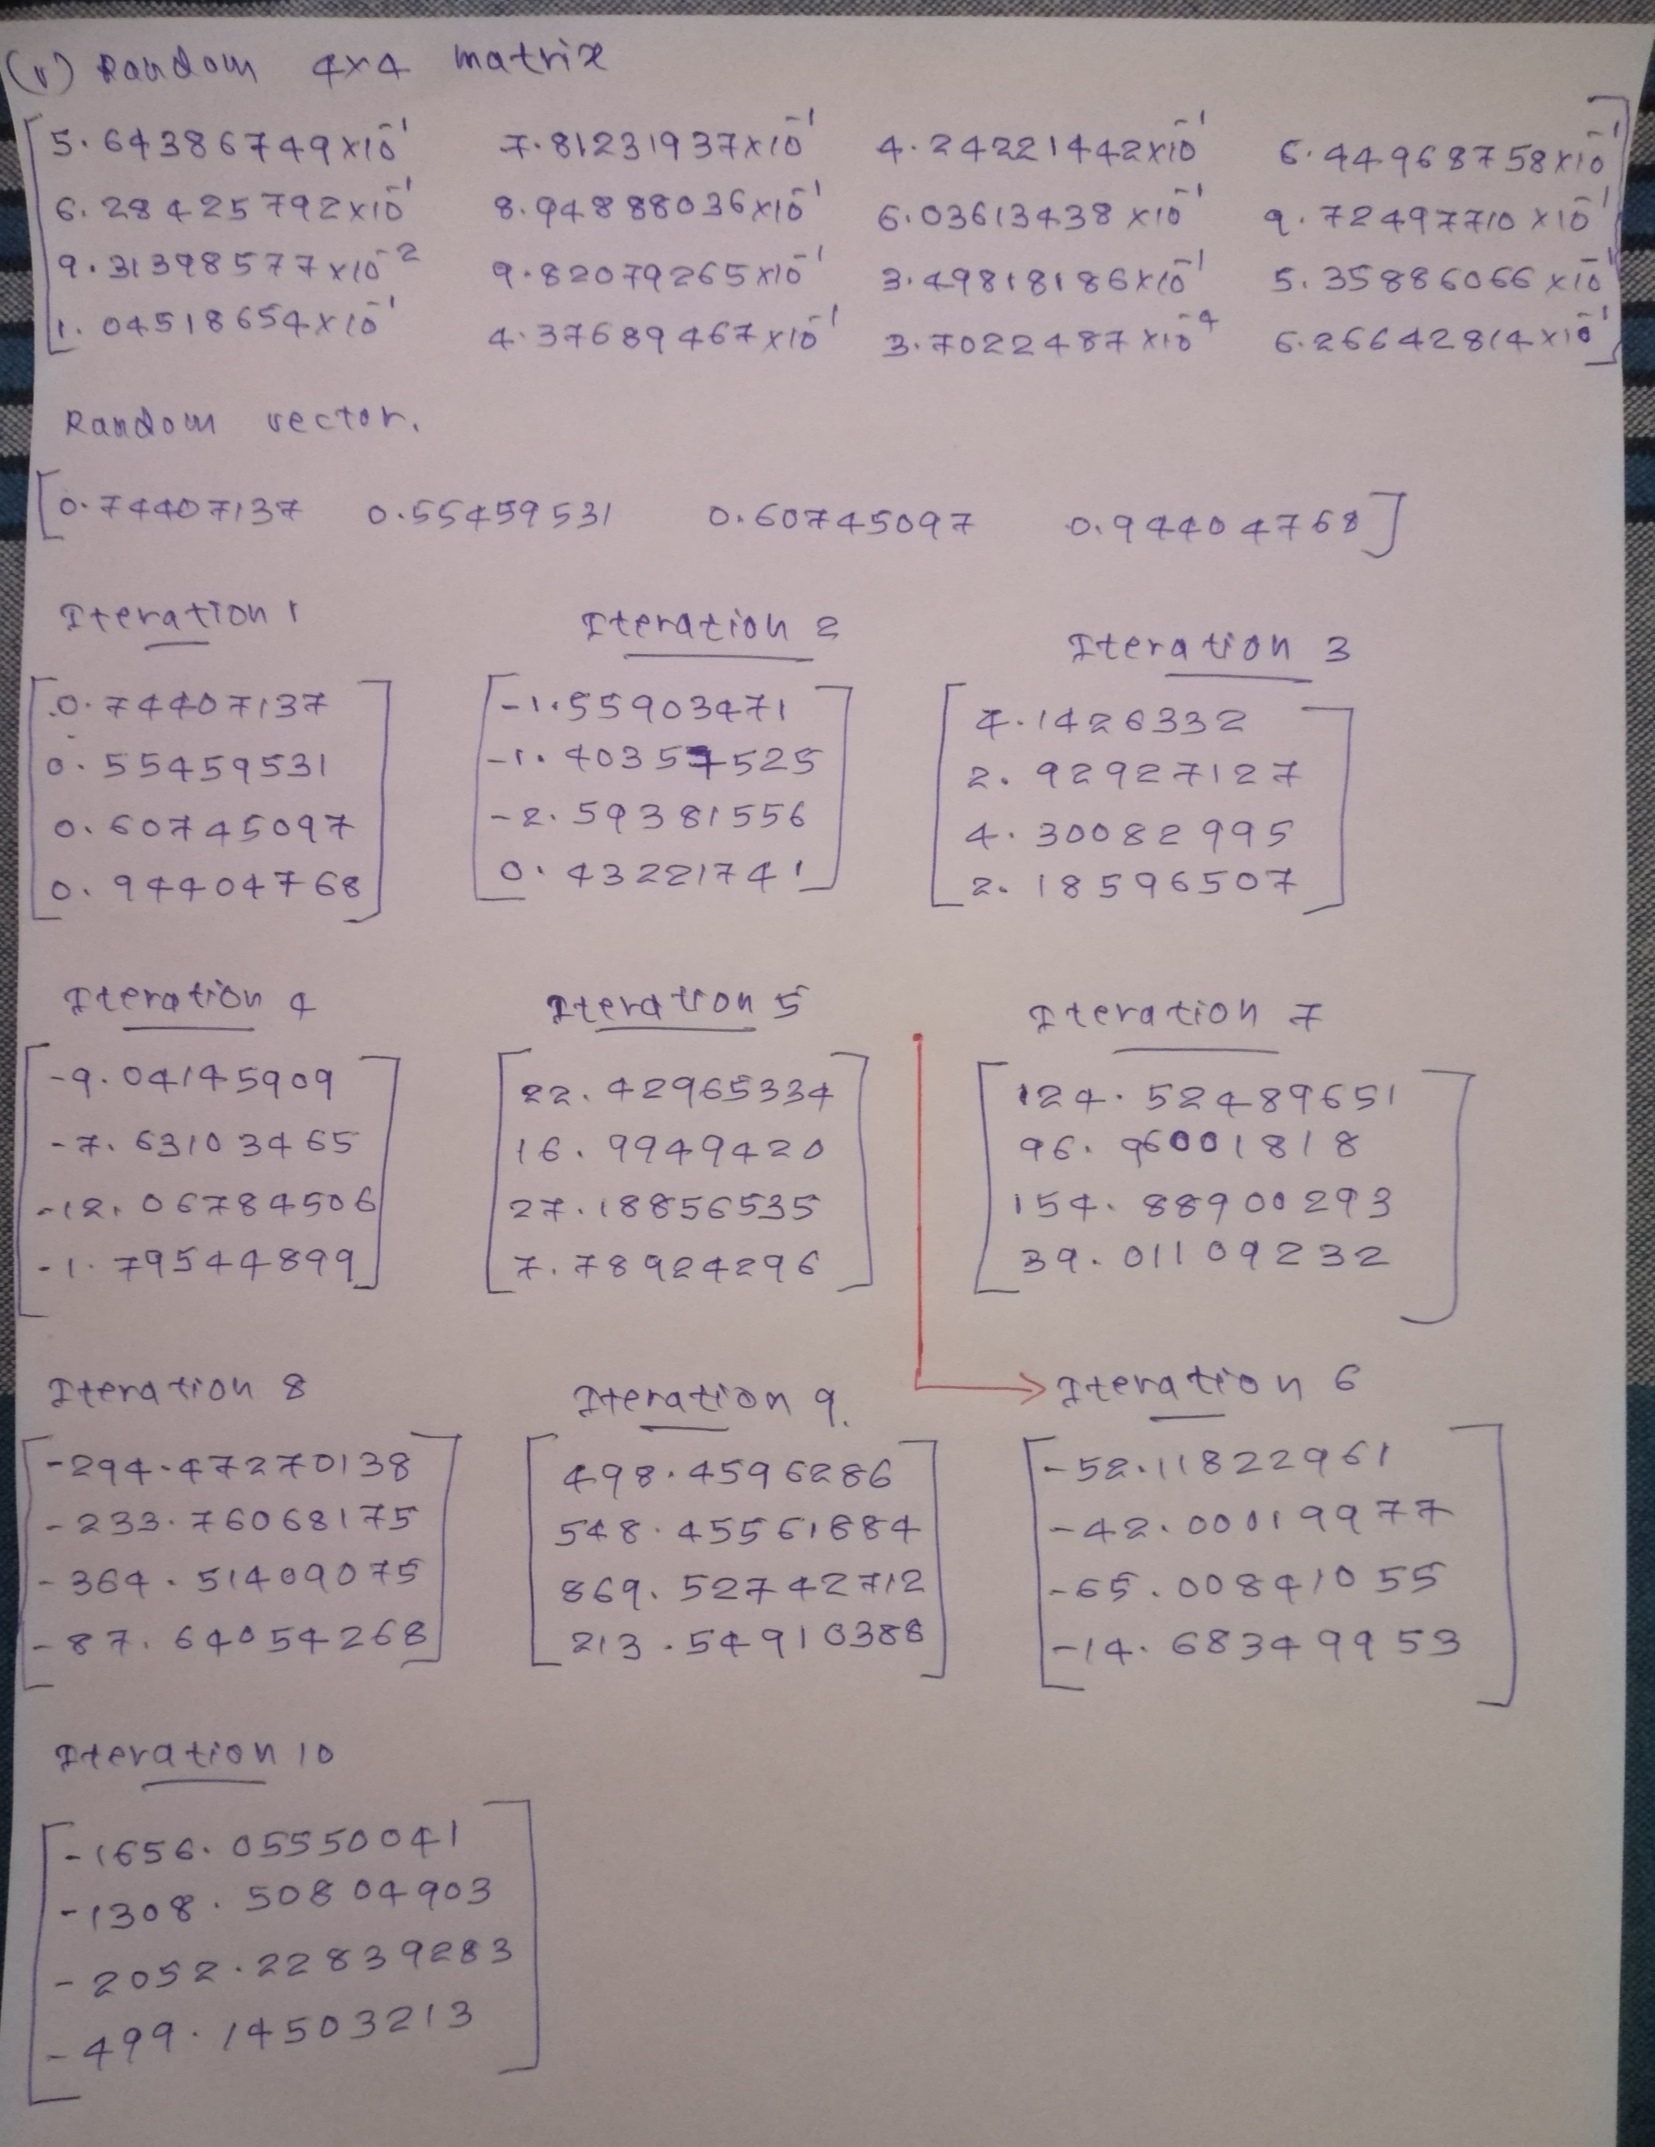 (v) Random 4x4 matrix
5.64386749x10^-1 7.81231937x10^-1 4.24221442x10^-1 6.44968758x10^-1
6.28425792x10^-1 8.94888036x10^-1 6.03613438x10^-1 9.72497710x10^-1
9.31398577x10^-2 9.82079265x10^-1 3.49818186x10^-1 5.35886066x10^-1
1.04518654x10^-1 4.37689467x10^-1 3.7022487x10^-4 6.26642814x10^-1
Random vector.
[0.74407137 0.55459531 0.60745097 0.94404768]
Iteration 1
0.74407137
0.55459531
0.60745097
0.94404768
Iteration 2
-1.55903471
-1.40357525
-2.59381556
0.43221741
Iteration 3
4.1426332
2.92927127
4.30082995
2.18596507
Iteration 4
-9.04145909
-7.63103465
-12.06784506
-1.79544899
Iteration 5
22.42965334
16.9949420
27.18856535
7.78924296
Iteration 7
124.52489651
96.96001818
154.88900293
39.01109232
Iteration 8
-294.47270138
-233.76068175
-364.51409075
-87.64054268
Iteration 9.
498.4596286
548.45561684
869.52742712
213.54910388
Iteration 6
-52.11822961
-42.00019977
-65.00841055
-14.68349953
Iteration 10
-1656.05550041
-1308.50804903
-2052.22839283
-499.14503213